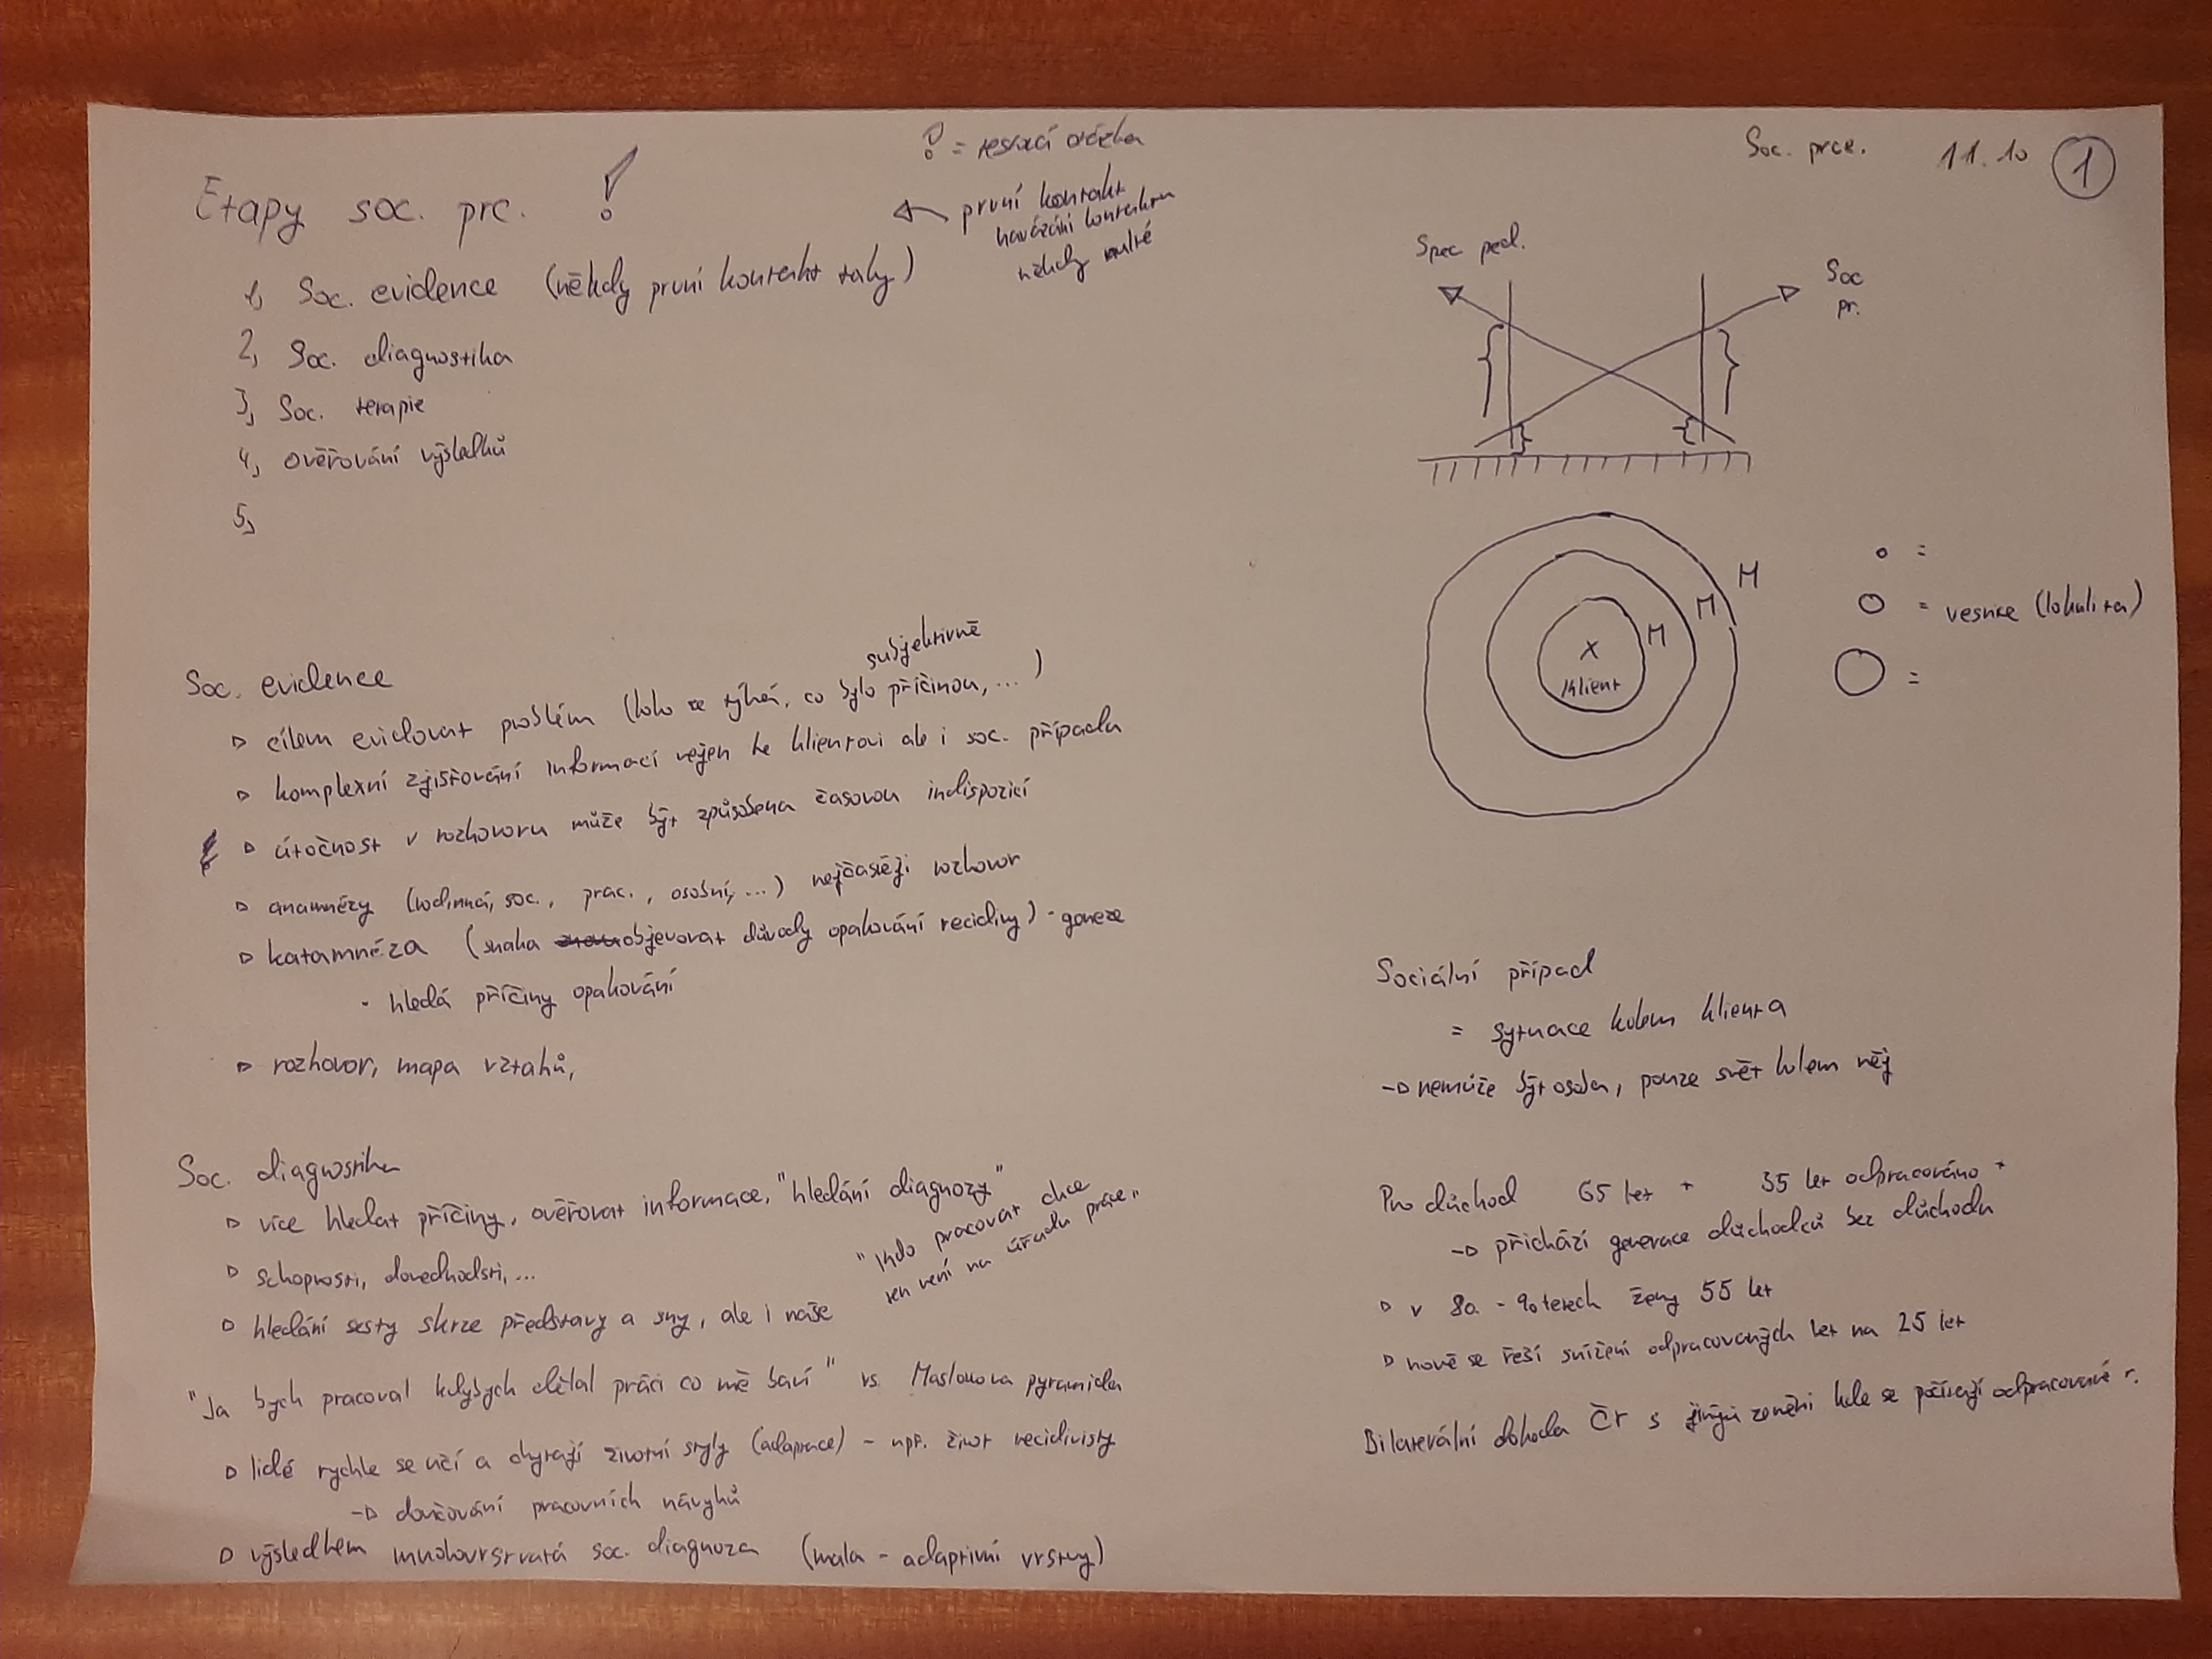 Soc. prce. 11.10 1
! = testací otázka
Etapy soc. prc. !
první kontakt
navázání kontaktu
někdy nutné
1, Soc. evidence (někdy první kontakt taky)
2, Soc. diagnostika
3, Soc. terapie
4, ověřování výsledků
5,
Soc. evidence
subjektivně
cílem evidovat problém (koho se týká, co bylo příčinou, ...)
komplexní zjišťování informací nejen ke klientovi ale i soc. případu
! útočnost v rozhovoru může být způsobena časovou indispozicí
anamnézy (rodinná, soc., prac., osobní, ...) nejčastěji rozhovor
katamnéza (snaha objevovat důvody opakování recidivy) - geneze
- hledá příčiny opakování
rozhovor, mapa vztahů,
Soc. diagnostika
více hledat příčiny, ověřovat informace, "hledání diagnozy"
schopnosti, dovednodsti, ...
"kdo pracovat chce
ten není na úřadu práce"
hledání cesty skrze představy a sny, ale i naše
"Ja bych pracoval kdybych dělal práci co mě baví" vs. Maslowova pyramida
lidé rychle se učí a chytají životní styly (adaptace) - např. život recidivisty
-> doučování pracovních návyků
výsledkem mnohovrstvatá soc. diagnoza (mala - adaptivní vrstvy)
Spec ped.
Soc
pr.
M
M
M
X
klient
o =
o = vesnice (lokalita)
O =
Sociální případ
= sytuace kolem klienta
-> nemůže být osoba, pouze svět kolem něj
Pro důchod 65 let + 35 let odpracováno +
-> přichází generace důchodců bez důchodu
v 80 - 90 tetech ženy 55 let
nově se řeší snížení odpracovaných let na 25 let
Bilaterální dohoda ČR s jinými zeměmi kde se počítají odpracované r.